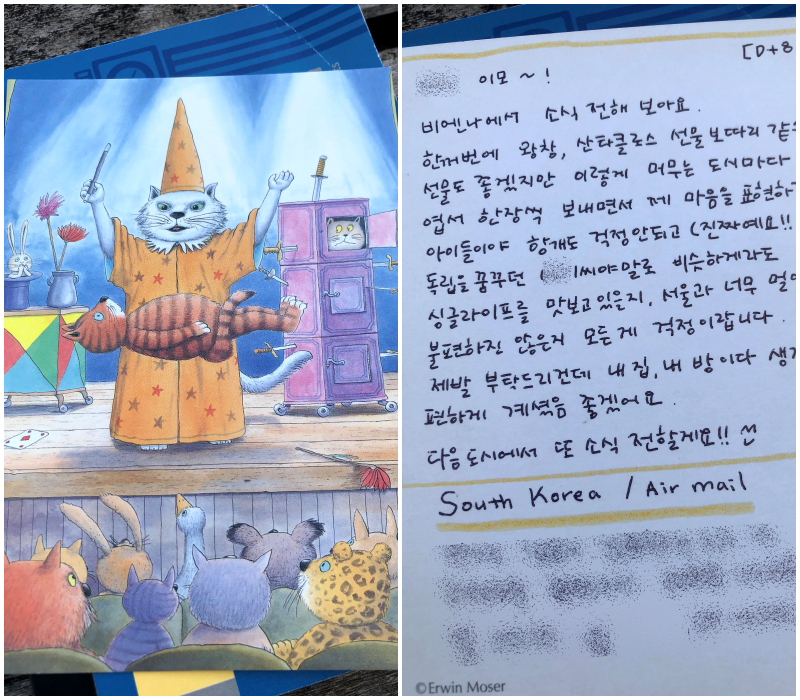 [D+8
이모 ~ !
비엔나에서 소식 전해 보아요.
한꺼번에 왕창, 산타클로스 선물보따리 같은
선물도 좋겠지만 이렇게 머무는 도시마다
엽서 한장씩 보내면서 제 마음을 표현하
아이들이야 항개도 걱정안되고 (진짜예요!!
독립을 꿈꾸던 씨야말로 비슷하게라도
싱글라이프를 맛보고있을지, 서울과 너무 멀어
불편하진 않은지 모든게 걱정이랍니다.
제발 부탁드리건데 내 집, 내 방이다 생각
편하게 계셨음 좋겠어요.
다음 도시에서 또 소식 전할게요!!
South Korea / Air mail
©Erwin Moser